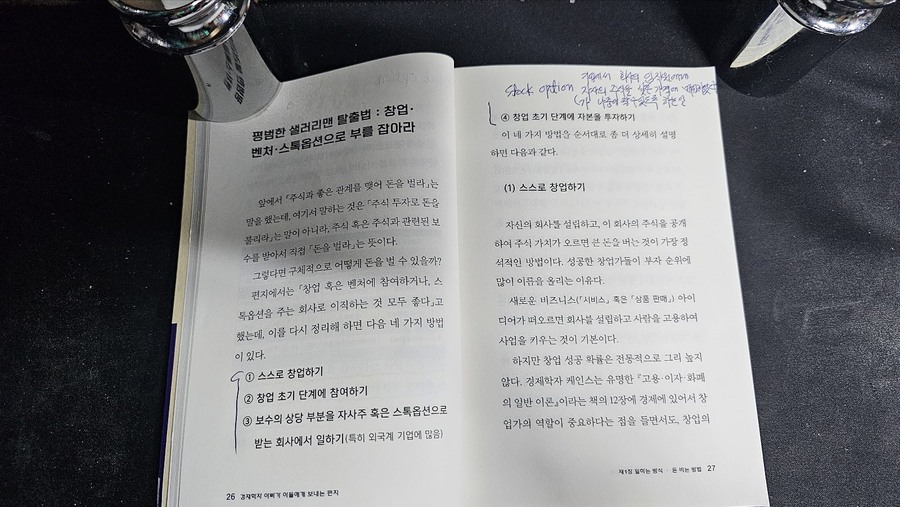 평범한 샐러리맨 탈출법 : 창업·
벤처·스톡옵션으로 부를 잡아라
앞에서 「주식과 좋은 관계를 맺어 돈을 벌라」는
말을 했는데, 여기서 말하는 것은 「주식 투자로 돈을
불리라」는 말이 아니라, 주식 혹은 주식과 관련된 보
수를 받아서 직접 「돈을 벌라」는 뜻이다.
그렇다면 구체적으로 어떻게 돈을 벌 수 있을까?
편지에서는 「창업 혹은 벤처에 참여하거나, 스
톡옵션을 주는 회사로 이직하는 것 모두 좋다」고
했는데, 이를 다시 정리해 하면 다음 네 가지 방법
이 있다.
① 스스로 창업하기
② 창업 초기 단계에 참여하기
③ 보수의 상당 부분을 자사주 혹은 스톡옵션으로
받는 회사에서 일하기(특히 외국계 기업에 많음)
26 경제학자 아빠가 아들에게 보내는 편지
stock option
기업에서 회사의 임직원에게
자사의 주식을 낮은 가격에
나중에 팔 수 있도록
④ 창업 초기 단계에 자본을 투자하기
이 네 가지 방법을 순서대로 좀 더 상세히 설명
하면 다음과 같다.
(1) 스스로 창업하기
자신의 회사를 설립하고, 이 회사의 주식을 공개
하여 주식 가치가 오르면 큰 돈을 버는 것이 가장 정
석적인 방법이다. 성공한 창업가들이 부자 순위에
많이 이름을 올리는 이유다.
새로운 비즈니스(「서비스」 혹은 「상품 판매」) 아이
디어가 떠오르면 회사를 설립하고 사람을 고용하여
사업을 키우는 것이 기본이다.
하지만 창업 성공 확률은 전통적으로 그리 높지
않다. 경제학자 케인스는 유명한 『고용·이자·화폐
의 일반 이론』이라는 책의 12장에 경제에 있어서 창
업가의 역할이 중요하다는 점을 들면서도, 창업의
제1장 일하는 방식 · 돈 버는 방법 27